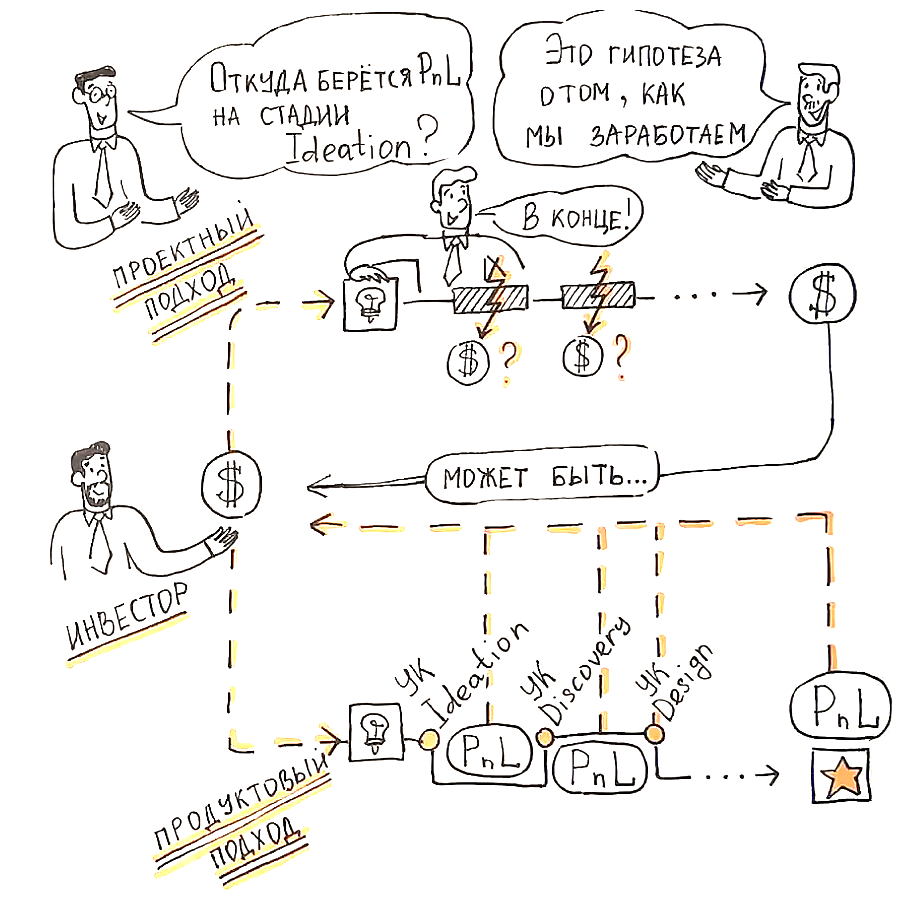 ОТКУДА БЕРЁТСЯ PnL
НА СТАДИИ
Ideation?
ЭТО ГИПОТЕЗА
О ТОМ, КАК
МЫ ЗАРАБОТАЕМ
В КОНЦЕ!
ПРОЕКТНЫЙ
ПОДХОД
$
$ ?
$ ?
$
МОЖЕТ БЫТЬ...
ИНВЕСТОР
УК
Ideation
УК
Discovery
УК
Design
PnL
PnL
PnL
ПРОДУКТОВЫЙ
ПОДХОД